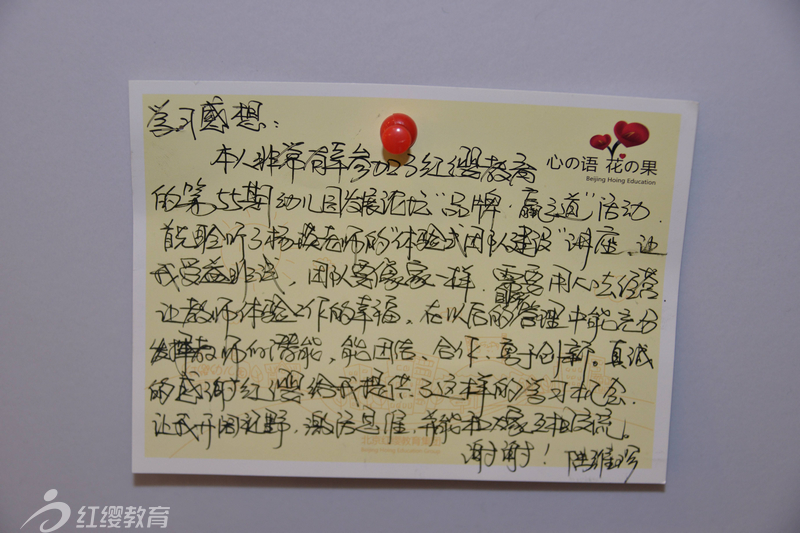 学习感想：
心の语 花の果
Beijing Hoing Education
本人非常有幸参加了红缨教育
的第55期幼儿园发展论坛“品牌·赢之道”活动.
首先聆听了杨瑛老师的“体验式团队建设”讲座、让
我受益非浅，团队要像家一样.需要用心去经营
让教师体验工作的幸福，在以后的管理中能充分
发挥教师的潜能，能团结、合作、勇于创新。真诚
的感谢红缨给我提供了这样的学习机会.
让我开阔视野，激活思维，并能和大家互相交流。
谢谢！陆维
北京红缨教育集团
红缨教育